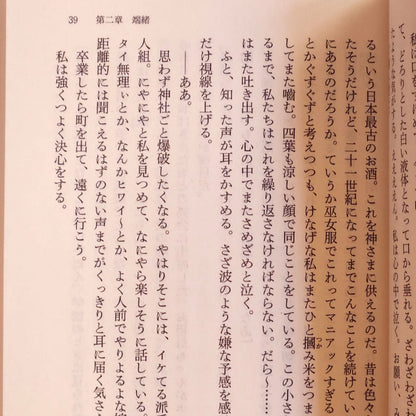 て、どろりとした白い液体となって口から垂れる。ざわざわ
ような気がする。私は心の中で泣く。お願い
39　第二章　端緒
るという日本最古のお酒。これを神さまに供えるのだ。昔は色々
たそうだけれど、二十一世紀になってまでこんなことを続けてい
にあるのだろうか。ていうか巫女服でこれってマニアックすぎる
とかぐずぐずと考えつつも、けなげな私はまたひと摑み米をつま
してまた噛む。四葉も涼しい顔で同じことをしている。この小さ
るまで、私たちはこれを繰り返さなければならない。だら〜……
はまた吐き出す。心の中でまたさめざめと泣く。
ふと、知った声が耳をかすめる。さざ波のような嫌な予感を感
だけ視線を上げる。
――ああ。
思わず神社ごと爆破したくなる。やはりそこには、イケてる派
人組。にやにやと私を見つめて、なにやら楽しそうに話している。
タイ無理ぃとか、なんかヒワイ〜とか、よく人前でやりよるよな
距離的には聞こえるはずのない声までがくっきりと耳に届く気さ
卒業したら町を出て、遠くに行こう。
私は強くつよく決心をする。